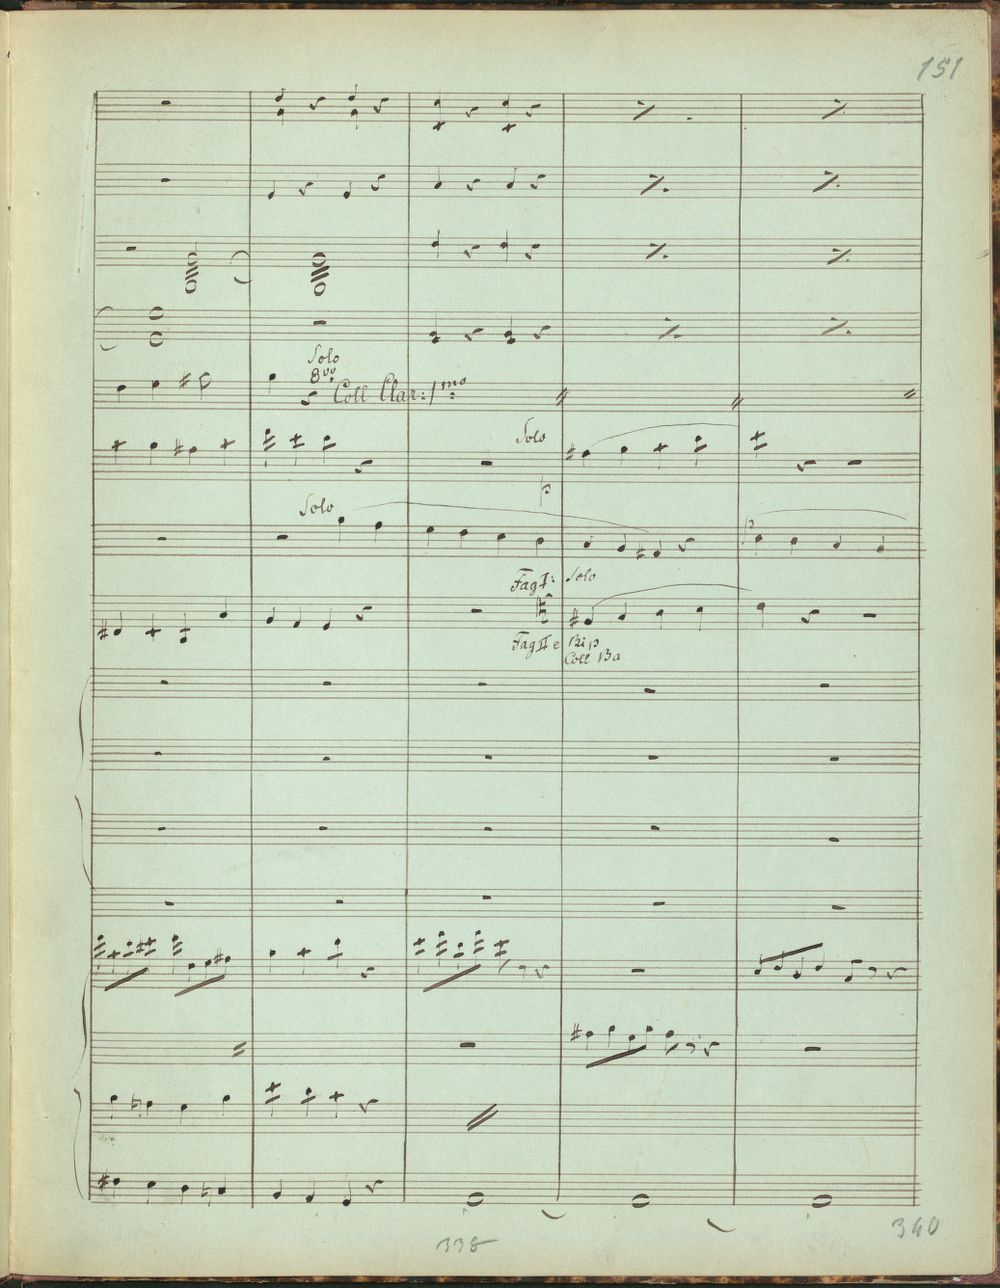 151
Solo
8va
Coll Clar: 1mo
Solo
p
Solo
p
Fag I: Solo
Fag II e Rip
Coll Ba
338
340